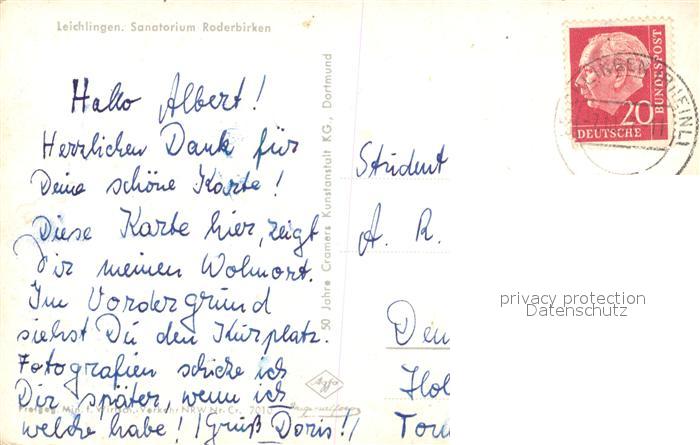 Leichlingen. Sanatorium Roderbirken
Hallo Albert!
Herzlichen Dank für
Deine schöne Karte!
Diese Karte hier, zeigt
Dir meinen Wohnort.
Im Vordergrund
siehst Du den Kurplatz.
Fotografien schicke ich
Dir später, wenn ich
welche habe! (Gruß Doris!)
Freigeg. Min. f. Wirtsch. Verkehr NRW Nr. Cr. 7010
50 Jahre Cramers Kunstanstalt KG., Dortmund
Agfa
20
DEUTSCHE
BUNDESPOST
(RHEINL)
Student
A. R.
Den
Hol
privacy protection
Datenschutz